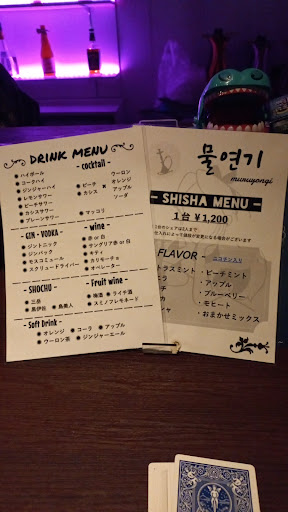 DRINK MENU
- cocktail -
ハイボール
コークハイ
ジンジャーハイ
レモンサワー
ピーチサワー
カシスサワー
プレーンサワー
ピーチ
カシス
×
ウーロン
オレンジ
アップル
ソーダ
マッコリ
- GIN・VODKA -
ジントニック
ジンバック
モスコミュール
スクリュードライバー
- wine -
赤 or 白
サングリア赤 or 白
キティ
カリモーチョ
オペレーター
- SHOCHU -
三岳
馬伊佐
島美人
- Fruit wine -
梅酒
ライチ酒
スミノフレモネード
- Soft Drink -
オレンジ
コーラ
アップル
ウーロン茶
ジンジャーエール
물연기
- SHISHA MENU -
1台 ¥1,200
FLAVOR -
ニコチン入り
・ピーチミント
・アップル
・ブルーベリー
・モヒート
・おまかせミックス